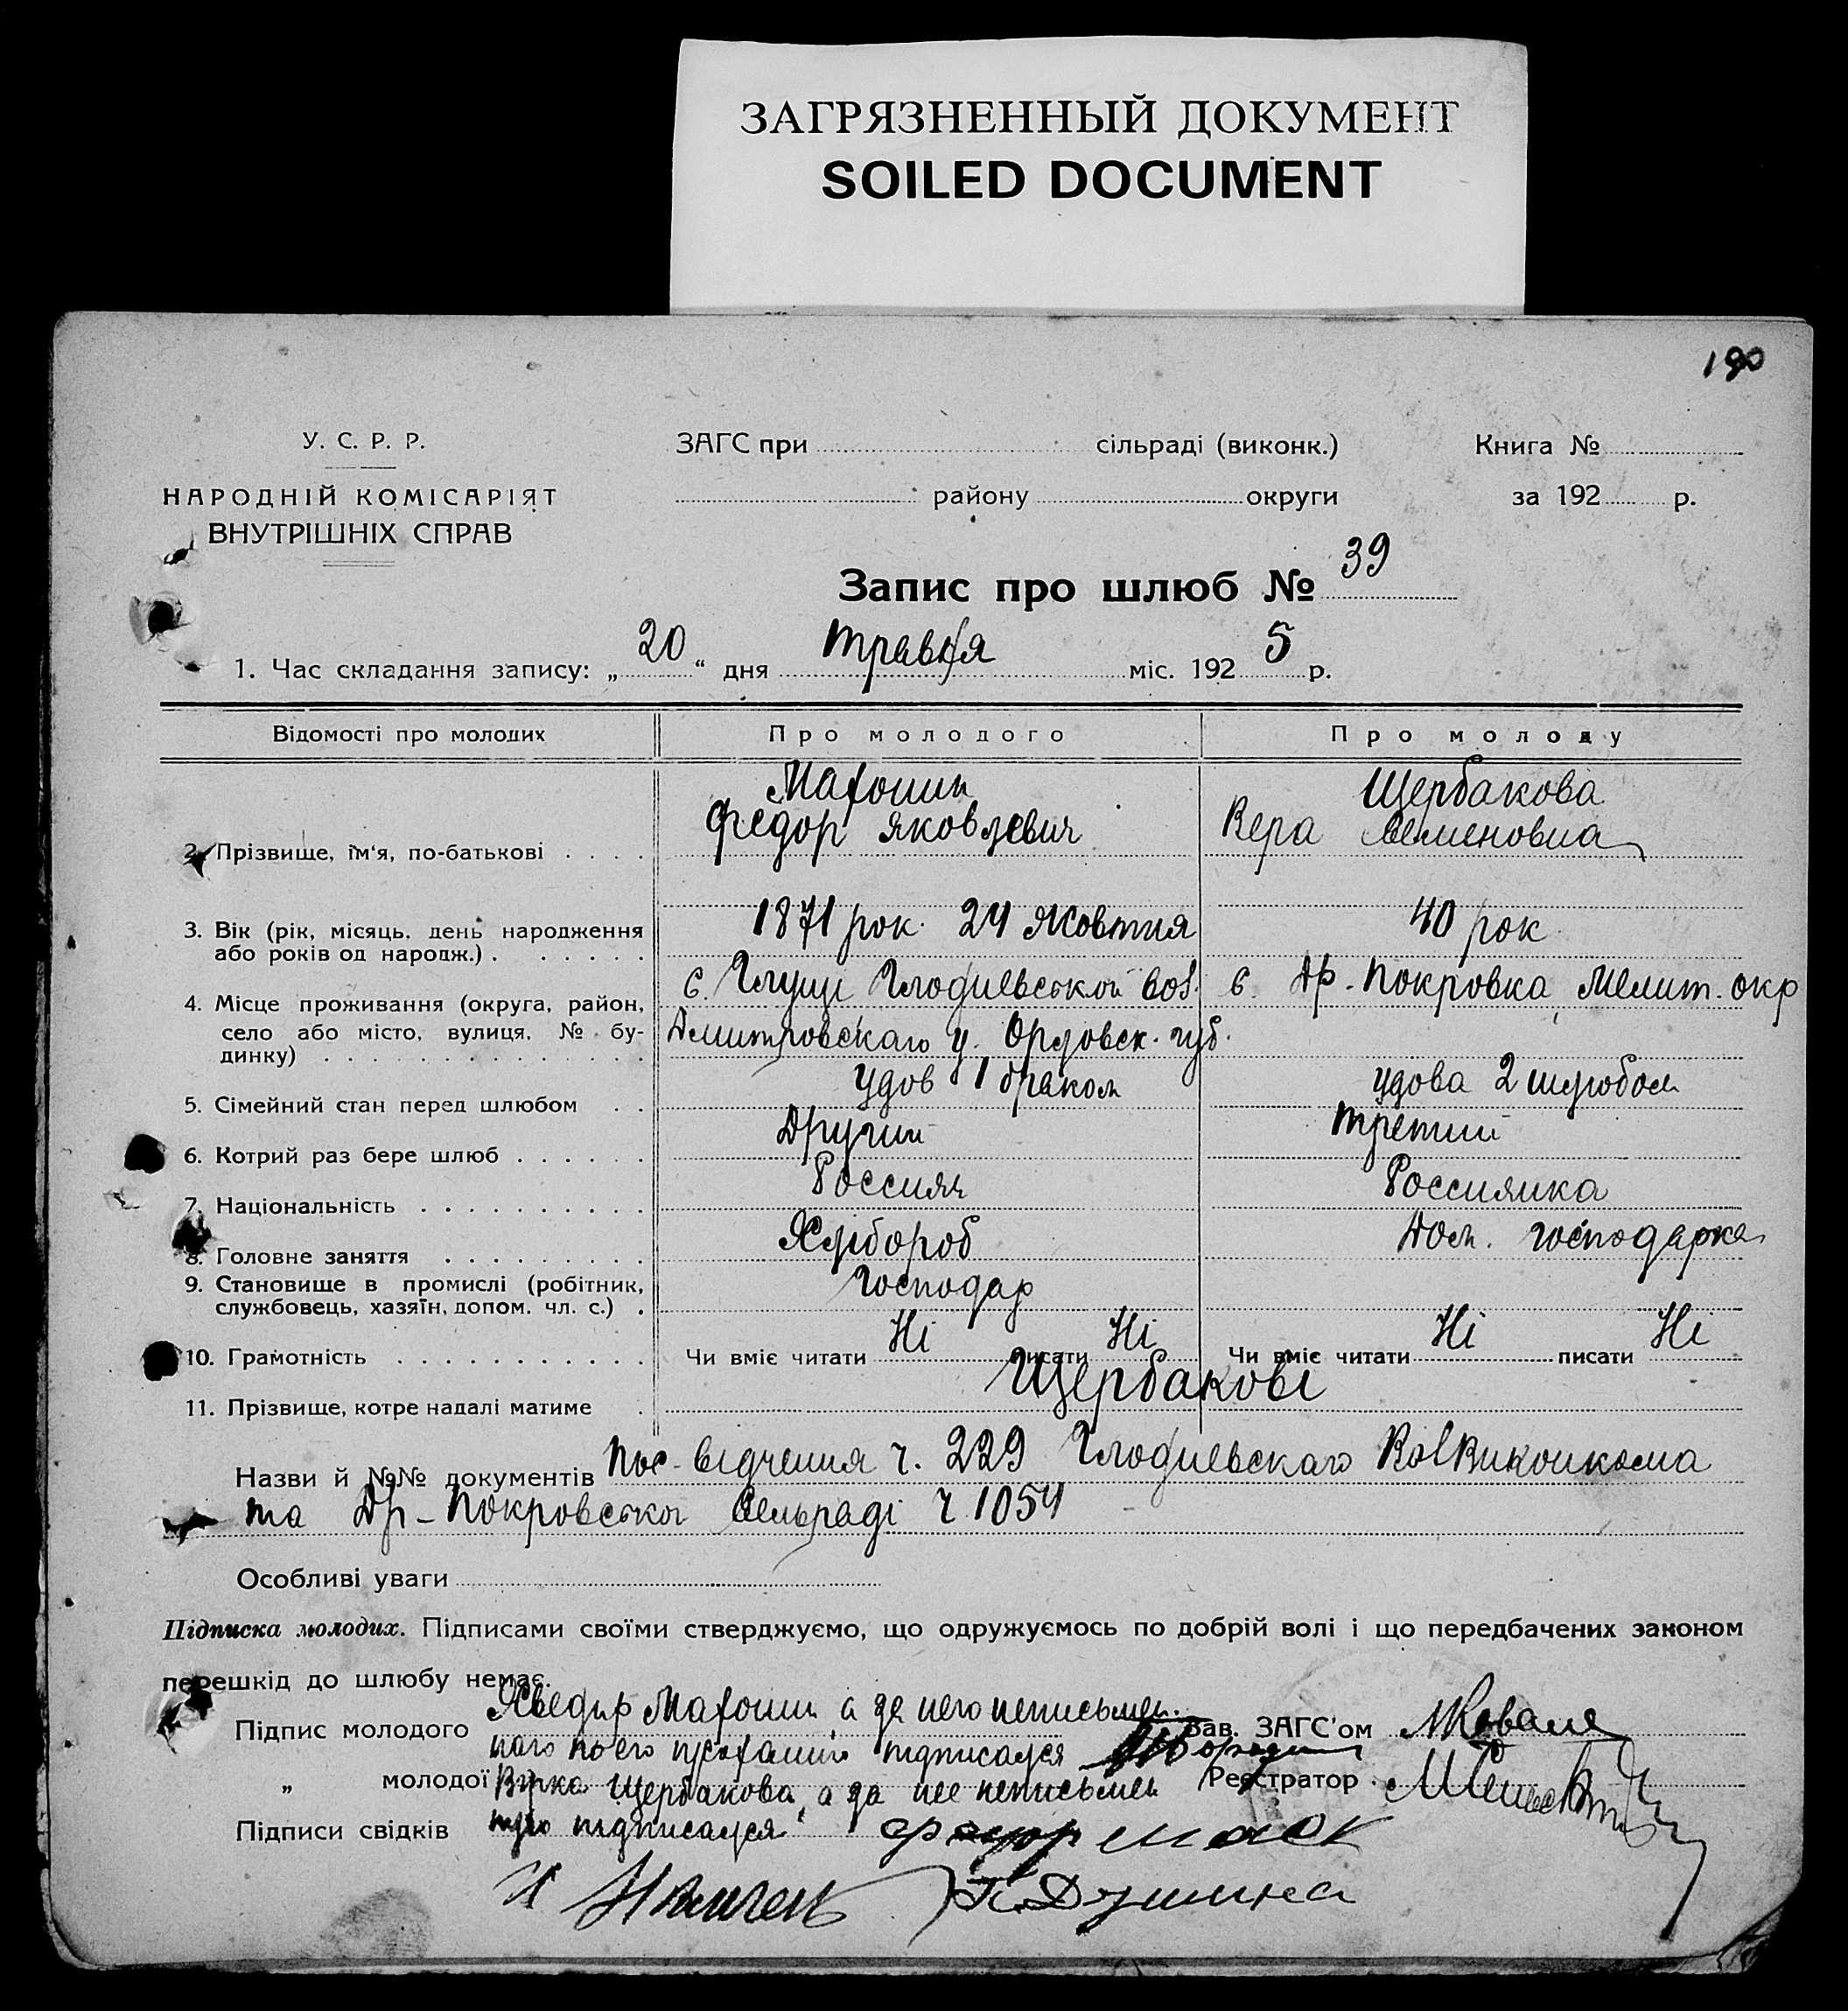 ЗАГРЯЗНЕННЫЙ ДОКУМЕНТ
SOILED DOCUMENT
190
У. С. Р. Р.
НАРОДНІЙ КОМІСАРІЯТ
ВНУТРІШНІХ СПРАВ
ЗАГС при сільраді (виконк.)
району округи
Книга №
за 192 р.
Запис про шлюб № 39
1. Час складання запису: „20“ дня травня міс. 1925 р.
Відомості про молодих Про молодого Про молоду
Махонин Щербакова
Федор Яковлевич Вера Семеновна
2. Прізвище, їм'я, по-батькові
3. Вік (рік, місяць, день народження або років од народж.) 1871 рок. 24 Жовтня 40 рок
4. Місце проживання (округа, район, село або місто, вулиця, № будинку) с. Глодневськой вол. с. Др-Покровка Мелит. окр
Дмитровскаго у. Орловск. губ.
5. Сімейний стан перед шлюбом удов 1 браком удова 2 шлюбом
6. Котрий раз бере шлюб Другий третий
7. Національність Россиян Россиянка
8. Головне заняття Хлібороб Дом. господарка
9. Становище в промислі (робітник, службовець, хазяїн, допом. чл. с.) Господар
10. Грамотність Чи вміє читати Ні писати Ні Чи вміє читати Ні писати Ні
11. Прізвище, котре надалі матиме Щербакові
Назви й №№ документів посвідчення ч. 229 Глодневскаго Волвиконкома
та Др-Покровської Сельраді ч 1054
Особливі уваги
Підписка молодих. Підписами своїми стверджуємо, що одружуємось по добрій волі і що передбачених законом
перешкід до шлюбу немає.
Підпис молодого Хведир Махонин а за него неписьмен-
наго по его підписался
Зав. ЗАГС'ом
„ молодої Вірка Щербакова, а за нее неписьмен
Реєстратор
Підписи свідків ную підписался